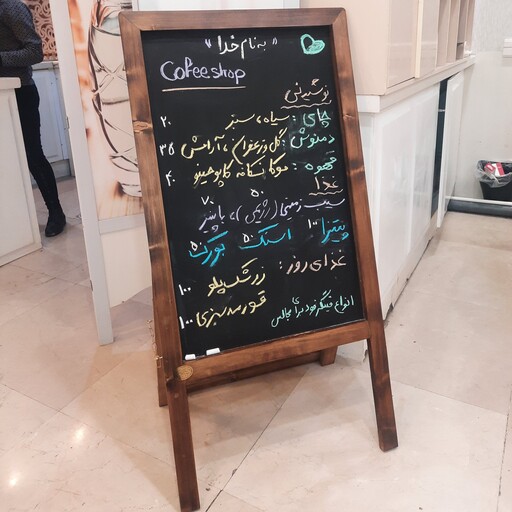 « به نام خدا »
Cofeeshop
نوشیدنی
چای : سیاه ، سبز ۲۰
دمنوش : گل و زعفران ، آرامش ۳۵
قهوه : موکا نسکافه کاپوچینو ۴۰
غذا
۵۰
سیب زمینی (رژیمی) ، با پنیر ۷۰
پیتزا ۱۰۰ اسنک ۵۰ بورک ۵۰
غذای روز : زرشک پلو ۱۰۰
قورمه سبزی ۱۰۰
انواع فینگر فود برای مجالس